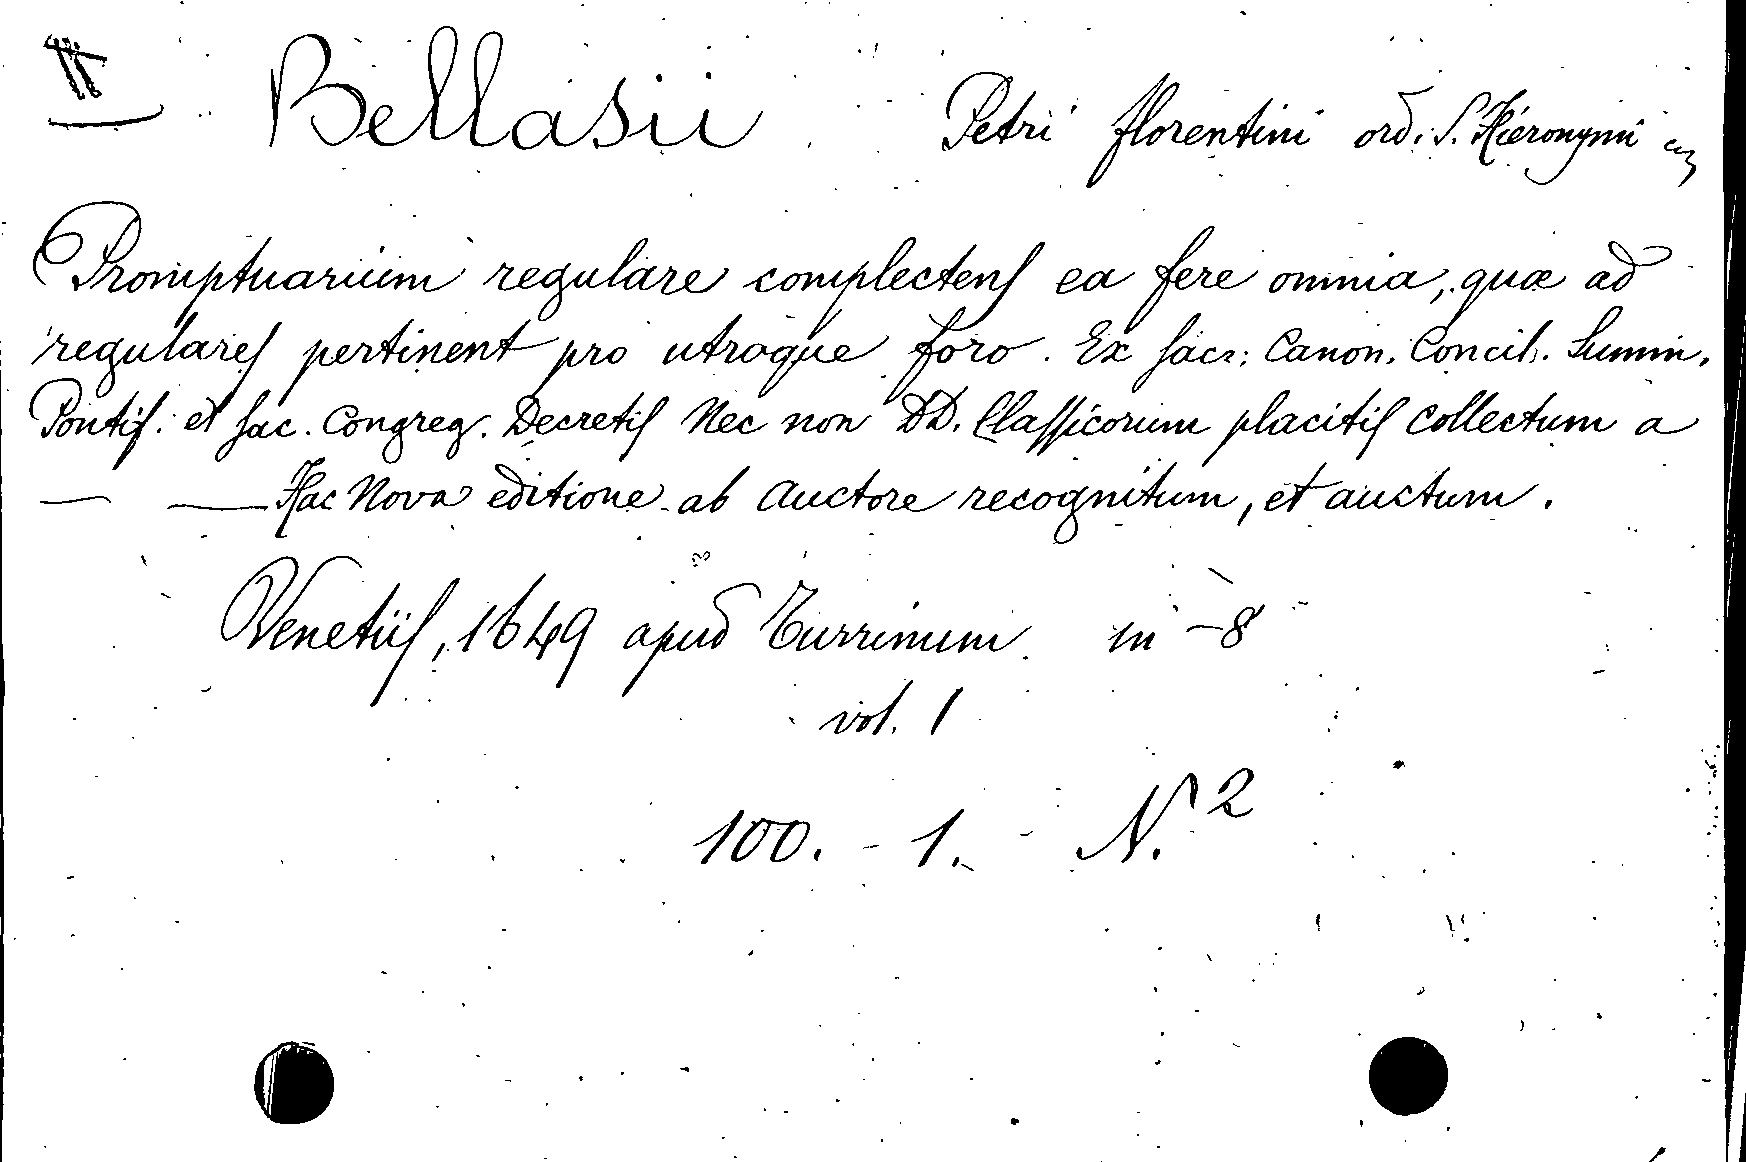 Bellasii Petri florentini ord. S. Hieronymi
Promptuarium regulare complectens ea fere omnia, quæ ad
regulares pertinent pro utroque foro. Ex sacr. Canon. Concil. Summ.
Pontif. et sac. Congreg. Decretis Nec non DD. Classicorum placitis collectum a
— — Hac Nova editione ab Auctore recognitum, et auctum.
Venetiis, 1649 apud Turrinum in-8
vol. 1
100. - 1. N. 2